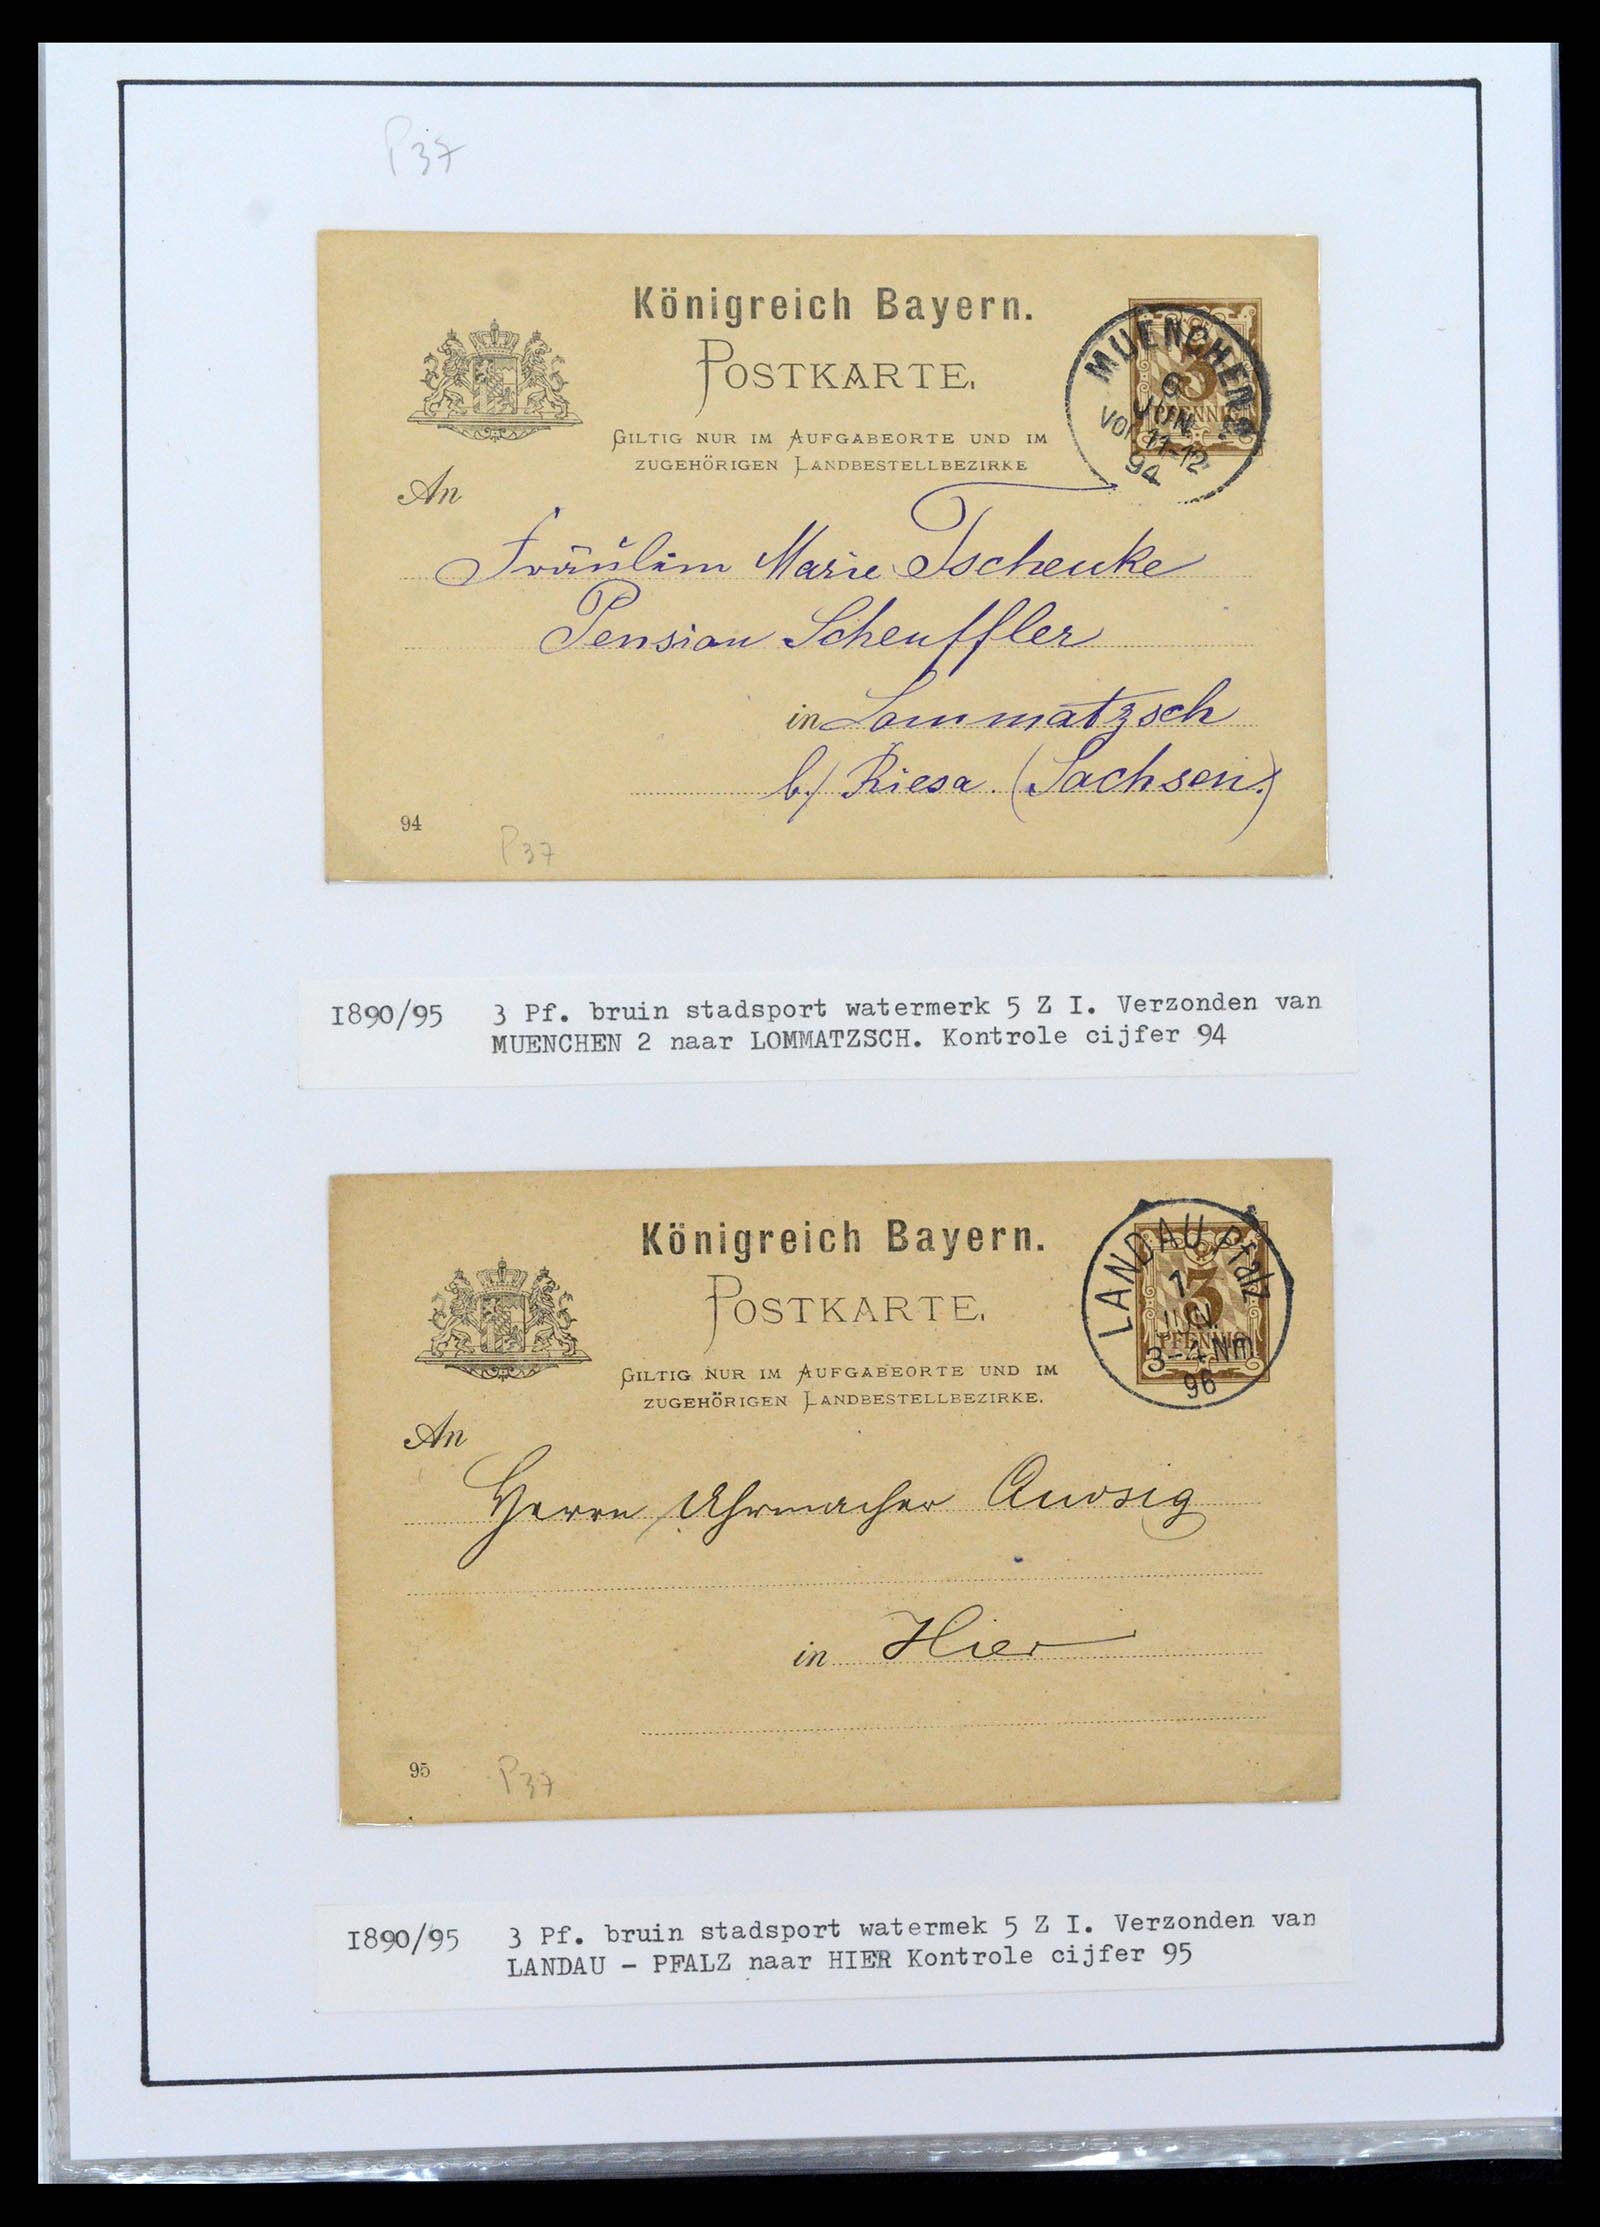 P37
Königreich Bayern.
POSTKARTE.
GILTIG NUR IM AUFGABEORTE UND IM
ZUGEHÖRIGEN LANDBESTELLBEZIRKE
MUENCHEN 2
6
JUN.
Vor. 11-12
94
3
PFENNIG
An
Fräulein Marie Tschenke
Pension Scheuffler
in Lommatzsch
b./ Riesa. (Sachsen.)
94
P37
1890/95 3 Pf. bruin stadsport watermerk 5 Z I. Verzonden van
MUENCHEN 2 naar LOMMATZSCH. Kontrole cijfer 94
Königreich Bayern.
POSTKARTE.
GILTIG NUR IM AUFGABEORTE UND IM
ZUGEHÖRIGEN LANDBESTELLBEZIRKE.
LANDAU PFALZ
JUN.
3-4 Nm
96
3
PFENNIG
An
Herrn Uhrmacher
in Hier
95
P37
1890/95 3 Pf. bruin stadsport watermek 5 Z I. Verzonden van
LANDAU - PFALZ naar HIER Kontrole cijfer 95